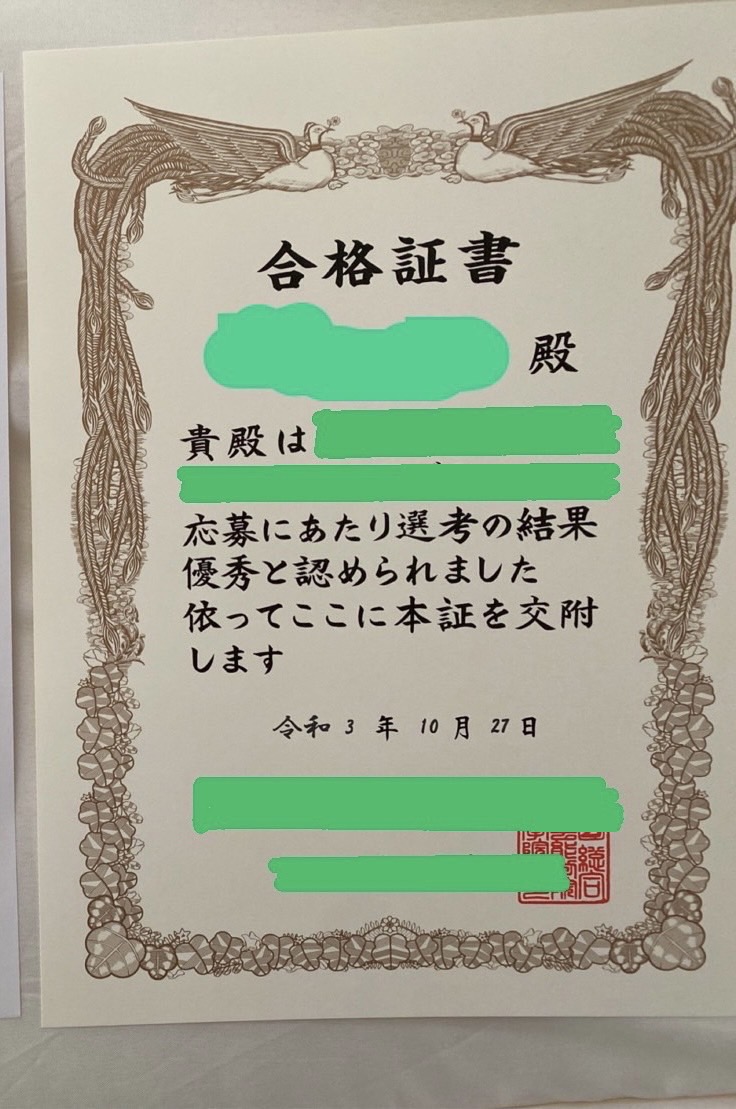 合格証書
殿
貴殿は
応募にあたり選考の結果
優秀と認められました
依ってここに本証を交附
します
令和 3 年 10 月 27 日